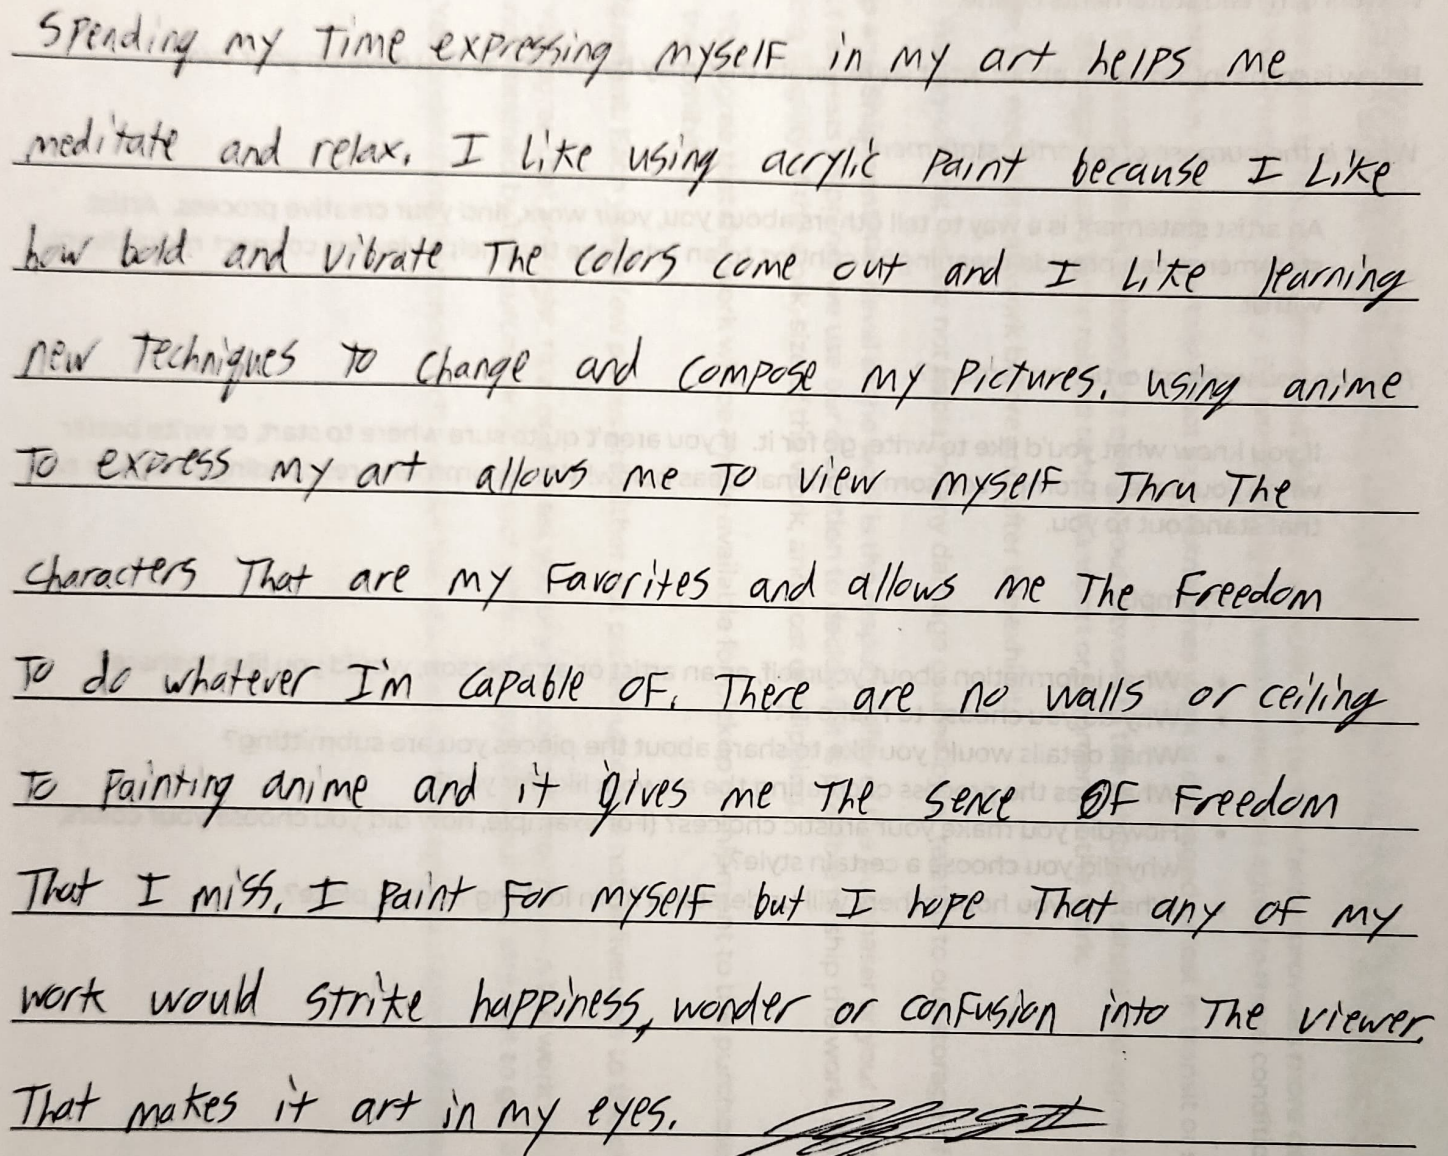 Spending my Time expressing myself in my art helps me
meditate and relax. I Like using acrylic Paint because I Like
how bold and vibrate The colors come out and I Like learning
new Techniques To change and compose my Pictures. using anime
To express my art allows me To view myself Thru The
characters That are my Favorites and allows me The Freedom
To do whatever I'm capable of. There are no walls or ceiling
To Painting anime and it gives me The sence of Freedom
That I miss. I Paint For myself but I hope That any of my
work would strike happiness, wonder or confusion into The viewer.
That makes it art in my eyes.